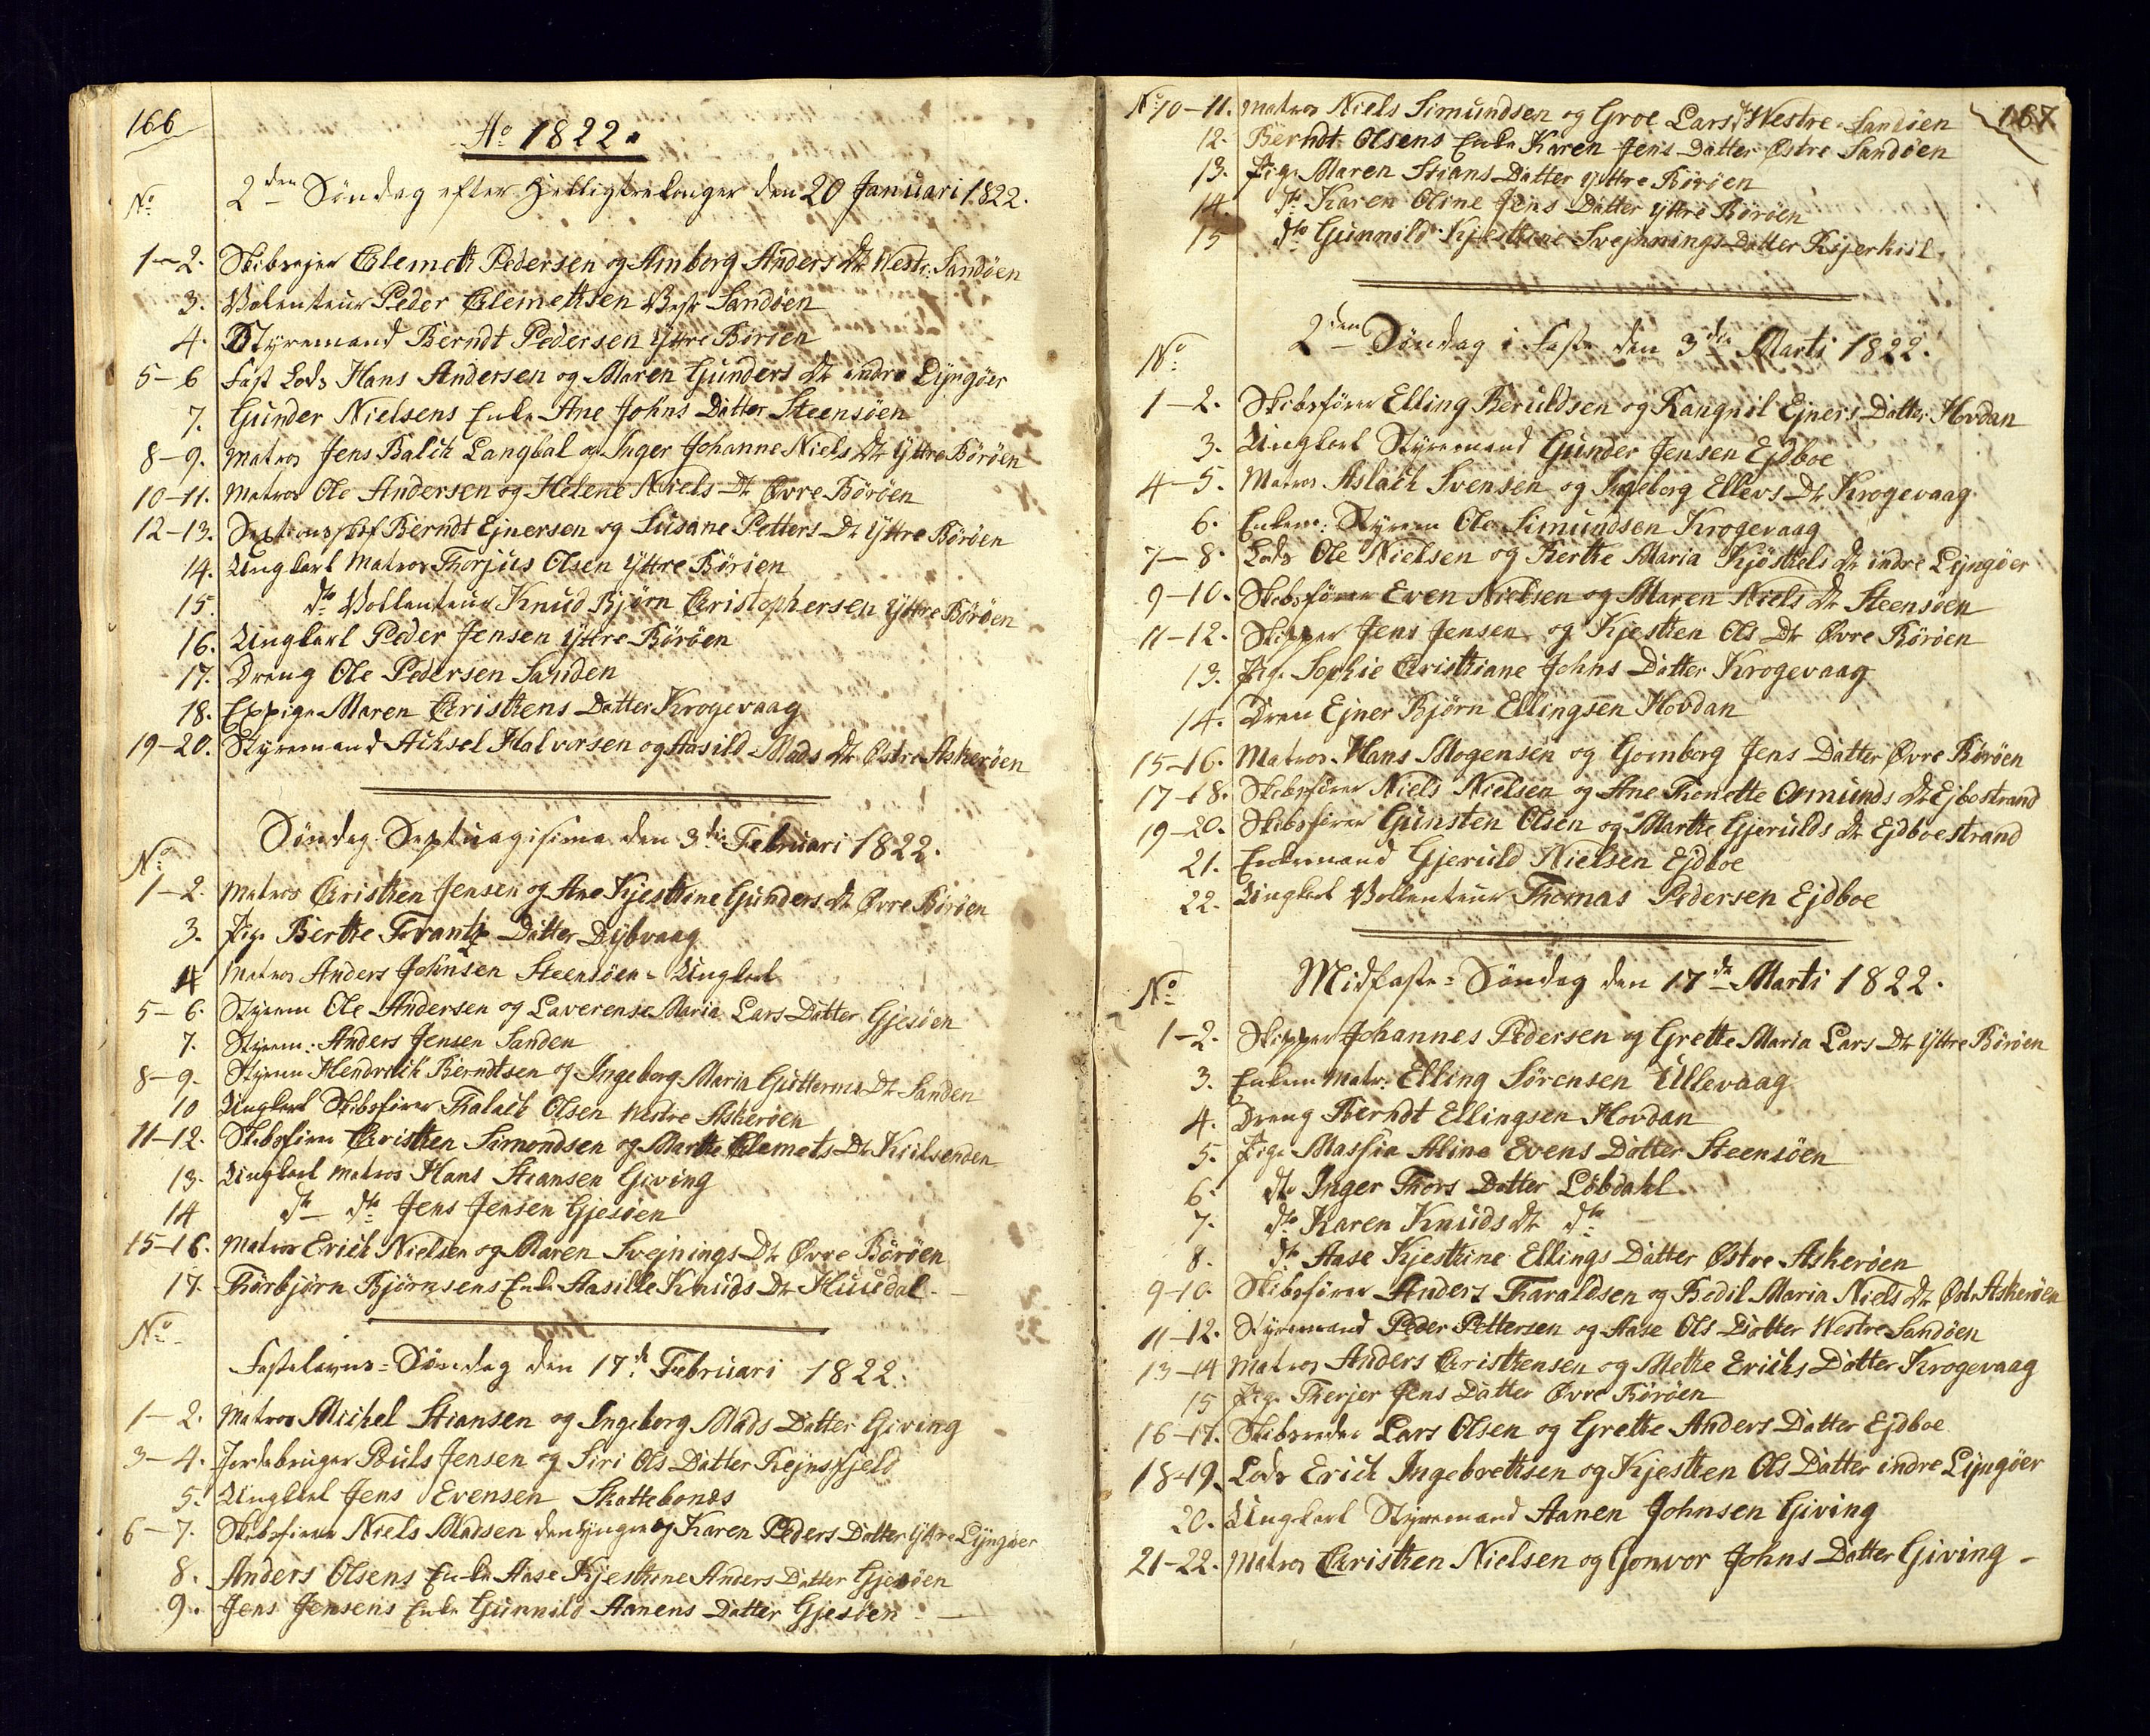 166
Ao 1822.
No 2den Søndag efter Helligtrekonger den 20 Januari 1822.
1-2. Skibsejer Clemeth Pedersen og Amborg Anders Dtr Westr. Sandøen
3. Volenteur Peder Clemethsen Vestr Sandøen
4. Styremand Berndt Pedersen Yttre Børøen
5-6 Fast Lods Hans Andersen og Maren Gunders Dtr indre Lyngøer
7. Gunder Nielsens Enke Ane Johns Datter Steensøen
8-9. Matros Jens Balch Langbal og Inger Johanne Niels Dtr Yttre Børøen
10-11. Matros Ole Andersen og Helene Niels Dtr Øvre Børøen
12-13. Berndt Ejnersen og Susane Petters Dr Yttre Børøen
14. Ungkarl Matros Thorjus Olsen Yttre Børøen
15. dto Vollenteur Knud Bjørn Christophersen Yttre Børøen
16. Ungkarl Peder Jensen Yttre Børøen
17. Dreng Ole Pedersen Sanden
18. Maren Christhens Datter Krogevaag
19-20. Styremand Achsel Halvorsen og Aasild Mads Dtr Østre Askerøen
Søndag Septuagisima den 3die Februari 1822.
No
1-2. Matros Christhen Jensen og Ane Kjesthine Gunders Dtr Øvre Børøen
3. Pige Berthe Frantz Datter Dybvaag
4 Matros Anders Johnsen Steensøen - Ungkarl
5-6. Styrem Ole Andersen og Laverense Maria Lars Datter Gjesøen
7. Styrem: Anders Jensen Sanden
8-9. Styrem Hendrich Berndtsen og Ingeborg Maria Gutterms Dtr Sanden
10 Ungkarl Skibsfører Thalach Olsen Westre Askerøen
11-12. Skibsfører Christhen Simondsen og Marthe Clemets Dtr Kiilsenden
13. Ungkarl Matros Hans Stiansen Giving
14 dto dto Jens Jensen Gjesøen
15-16. Matros Erich Nielsen og Maren Svejnings Dtr Øvre Børøen
17. Thorbjørn Bjørnsens Enke Aasille Knuds Dtr Huusdal
No
Fastelavns-Søndag den 17de Februari 1822.
1-2. Matros Michel Stiansen og Ingeborg Mads Datter Giving
3-4. Jordbruger Pouls Jensen og Siri Ols Datter Rejnsfjeld
5. Ungkarl Jens Evensen Skattebonds
6-7. Skibsfører Niels Madsen den yngre og Karen Peders Datter Yttre Lyngøer
8. Anders Olsens Enke Aase Kjesthene Anders Datter Gjesøen
9. Jens Jensens Enke Gunnild Aanens Datter Gjesøen
167
No 10-11. Matros Niels Simundsen og Groe Lars Dtr Westre Sandøen
12. Berndt Olsens Enke Karen Jens Datter Østre Sandøen
13. Pige Maren Stians Datter Yttre Børøen
14. dto Karen Oline Jens Datter Yttre Børøen
15 dto Gunnild Kjesthine Svejnnings Datter Kijerkiil
2den Søndag i Faste den 3die Marti 1822.
No
1-2. Skibsfører Elling Beruldsen og Rangnil Ejners Datter Hovdan
3. Ungkarl Styremand Gunder Jensen Ejdboe
4-5. Matros Aslach Svensen og Ingeborg Ellevs Dtr Krogevaag
6. Enkem: Styrem Ole Simundsen Krogevaag
7-8. Lods Ole Nielsen og Berthe Maria Kjøstels Dtr indre Lyngøer
9-10. Skibsfører Even Nielsen og Maren Niels Dtr Steensøen
11-12. Skipper Jens Jensen og Kjesthen Ols Dtr Øvre Børøen
13. Pige Sophie Christhiane Johns Datter Krogevaag
14. Dren Ejner Bjørn Ellingsen Hovdan
15-16. Matros Hans Mogensen og Gomborg Jens Datter Øvre Børøen
17-18. Skibsfører Niels Nielsen og Ane Thonette Osmunds Dtr Ejbostrand
19-20. Skibsfører Gunsten Olsen og Marthe Gjerulds Dr Ejdboestrand
21. Enkemand Gjeruld Nielsen Ejdboe
22. Ungkarl Vollenteur Thomas Pedersen Ejdboe
Midfaste-Søndag den 17de Marti 1822.
No
1-2. Skipper Johannes Pedersen og Grethe Maria Lars Dtr Yttre Børøen
3. Enkem Matr. Elling Sørensen Ullevaag
4. Dreng Berndt Ellingsen Hovdan
5. Pige Massia Aline Evens Datter Steensøen
6. dto Inger Thors Datter Løbdahl
7. dto Karen Knuds Dtr dto
8. dto Aase Kjesthine Ellings Datter Østre Askerøen
9-10. Skibsfører Anders Tharaldsen og Bodil Maria Niels Dtr Øst. Askerøen
11-12. Styremand Peder Pettersen og Aase Ols Datter Westre Sandøen
13-14 Matros Anders Christhensen og Methe Erichs Datter Krogevaag
15 Pige Therjer Jens Datter Øvre Børøen
16-17. Skibsreder Lars Olsen og Grethe Anders Datter Ejdboe
18-19. Lods Erich Ingebrethsen og Kjesthen Ols Datter indre Lyngøer
20. Ungkarl Styremand Aanen Johnsen Giving
21-22. Matros Christhen Nielsen og Gonvor Johns Datter Giving